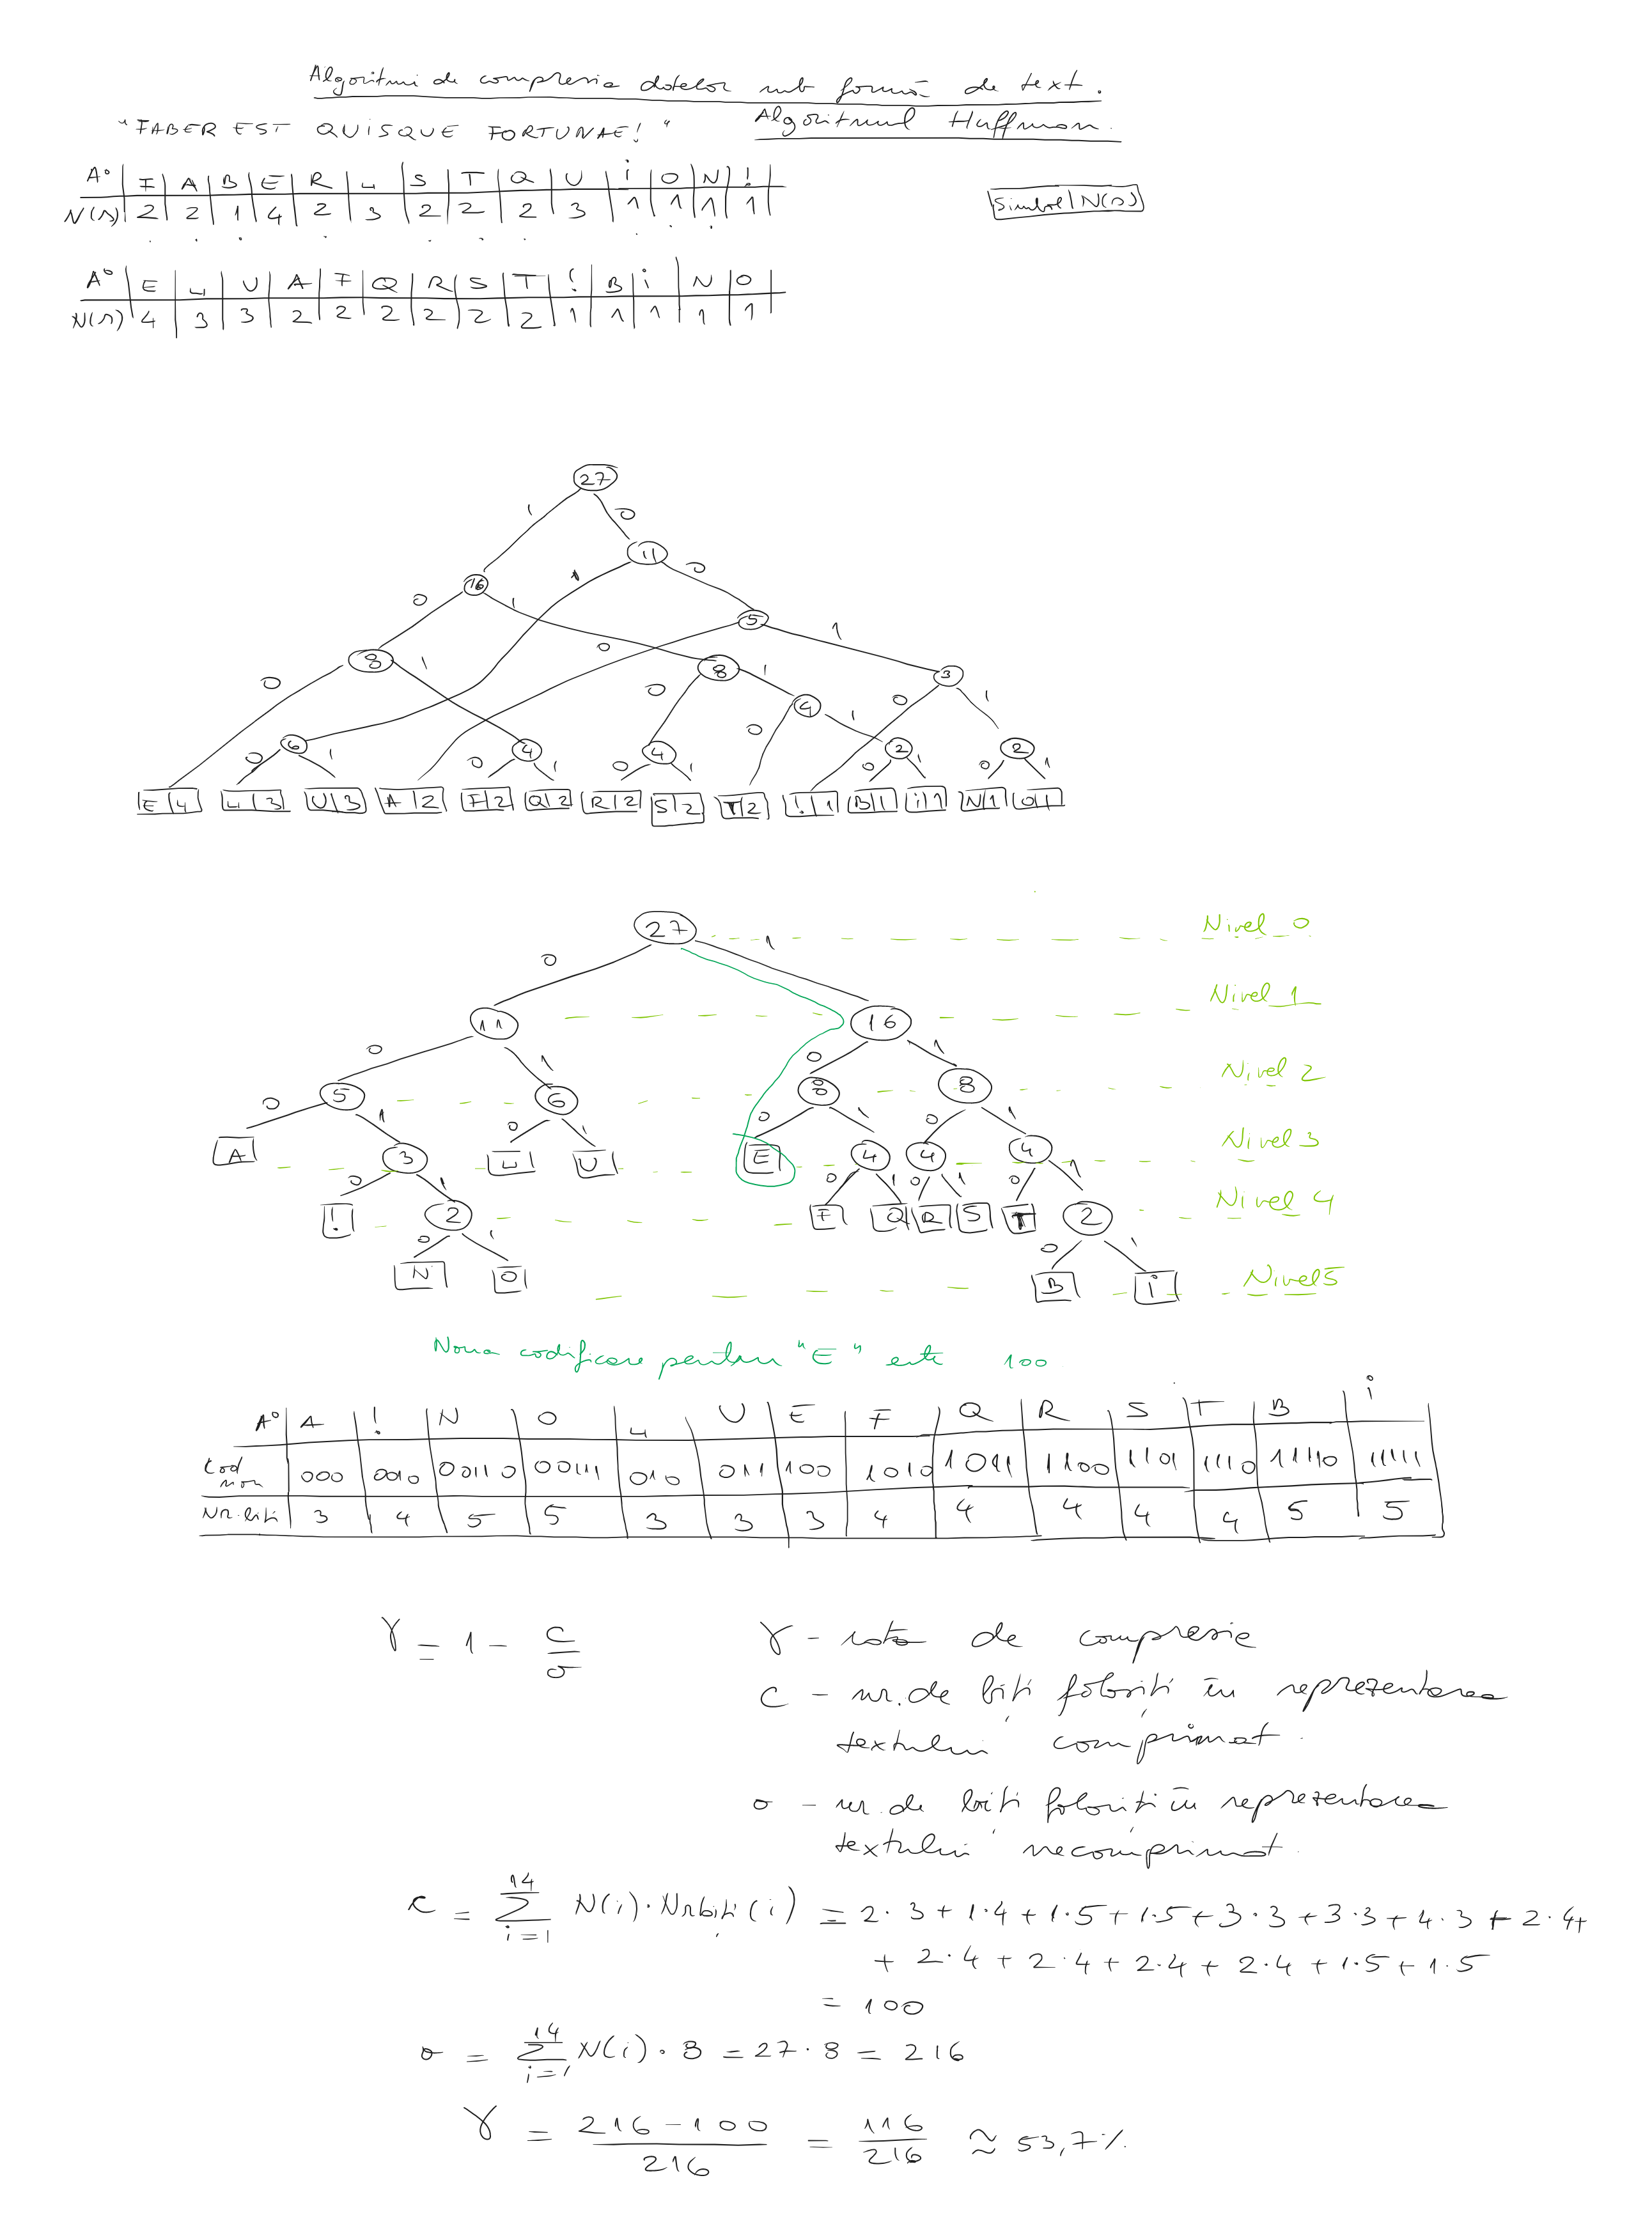 Algoritmi de compresia datelor sub formă de text.
Algoritmul Huffman.
"FABER EST QUISQUE FORTUNAE!"
A° | F | A | B | E | R | ␣ | S | T | Q | U | i | O | N | !
N(s) | 2 | 2 | 1 | 4 | 2 | 3 | 2 | 2 | 2 | 3 | 1 | 1 | 1 | 1
Simbol | N(s)
A° | E | ␣ | U | A | F | Q | R | S | T | ! | B | i | N | O
N(s) | 4 | 3 | 3 | 2 | 2 | 2 | 2 | 2 | 2 | 1 | 1 | 1 | 1 | 1
27
1 0
11
1 0
16
0 1
5
0 1
8
0 1
8
0 1
3
0 1
4
0 1
6
0 1
4
0 1
4
0 1
2
0 1
2
0 1
E|4 ␣|3 U|3 A|2 F|2 Q|2 R|2 S|2 T|2 !|1 B|1 i|1 N|1 O|1
27 Nivel 0
0 1
11 16 Nivel 1
0 1 0 1
5 6 8 8 Nivel 2
0 1 0 1 0 1 0 1
A 3 ␣ U E 4 4 4 Nivel 3
0 1 0 1 0 1 0 1
! 2 F Q R S T 2 Nivel 4
0 1 0 1
N O B i Nivel 5
Noua codificare pentru "E" este 100
A° | A | ! | N | O | ␣ | U | E | F | Q | R | S | T | B | i
Cod nou | 000 | 0010 | 00110 | 00111 | 010 | 011 | 100 | 1010 | 1011 | 1100 | 1101 | 1110 | 11110 | 11111
Nr. biți | 3 | 4 | 5 | 5 | 3 | 3 | 3 | 4 | 4 | 4 | 4 | 4 | 5 | 5
γ = 1 - c/σ
γ - rata de compresie
c - nr. de biți folosiți în reprezentarea
textului comprimat.
σ - nr. de biți folosiți în reprezentarea
textului necomprimat.
c = Σ_{i=1}^{14} N(i)·Nrbiți(i) = 2·3+1·4+1·5+1·5+3·3+3·3+4·3+2·4+
+ 2·4+2·4+2·4+2·4+1·5+1·5
= 100
σ = Σ_{i=1}^{14} N(i)·8 = 27·8 = 216
γ = (216-100)/216 = 116/216 ≈ 53,7%